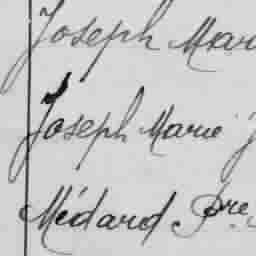 Joseph Mar
Joseph Marie J
Médard Pre